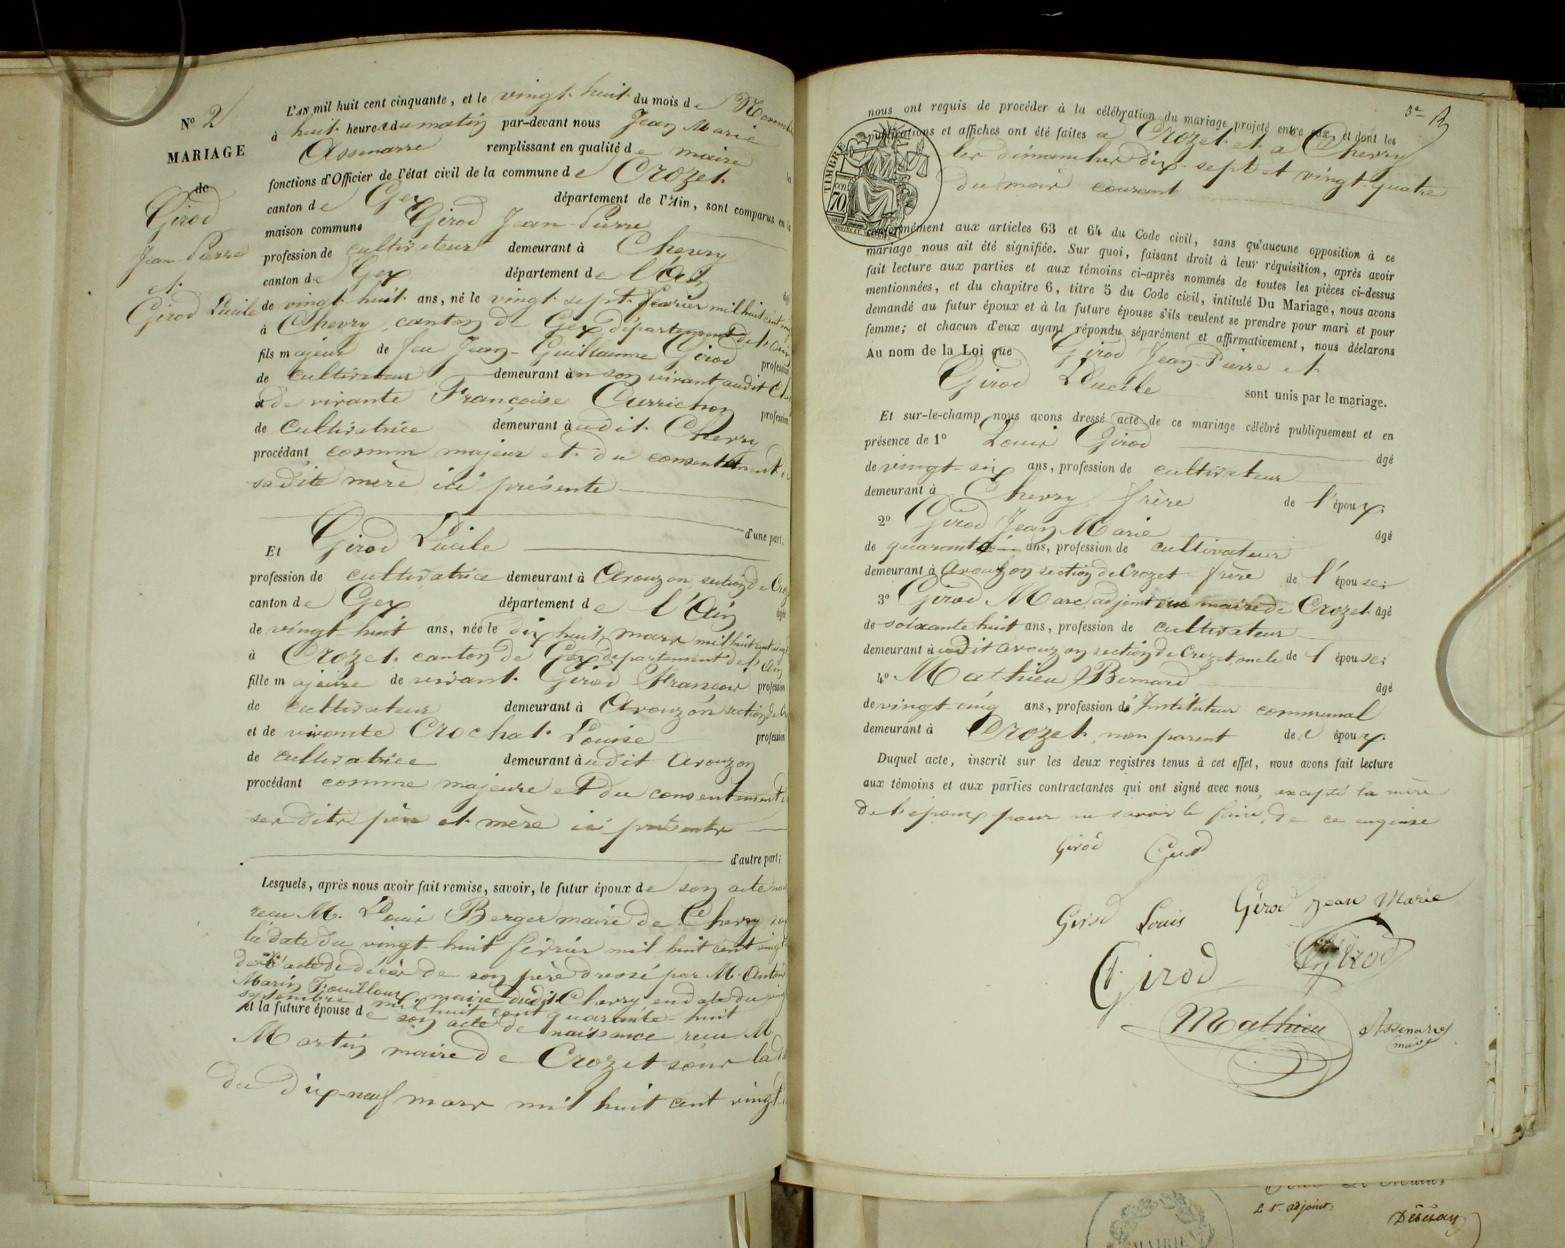 Nº 2
MARIAGE
de
Girod
Jean Pierre
et
Girod Lucile
L'AN mil huit cent cinquante, et le vingt huit du mois de Novembre
à huit heures du matin par-devant nous Jean Marie
Assenarre remplissant en qualité de maire
fonctions d'Officier de l'état civil de la commune de Crozet
canton de Gex département de l'Ain, sont comparus en la
maison commune Girod Jean Pierre
profession de cultivateur demeurant à Chevry
canton de Gex département de l'Ain
de vingt huit ans, né le vingt sept février mil huit cent
à Chevry, canton de Gex département de l'Ain
fils majeur de feu Jean-Guillaume Girod profession
de cultivateur demeurant à en son vivant audit
de vivante Françoise profession
de cultivatrice demeurant audit Chevry
procédant comme majeur et du consentement
sadite mère ici présente
d'une part;
Et Girod Lucile
profession de cultivatrice demeurant à Avouzon section de
canton de Gex département de l'Ain
de vingt huit ans, née le dix huit mars mil huit cent
à Crozet canton de Gex département de l'Ain
fille majeure de vivant Girod François profession
de cultivateur demeurant à Avouzon section de
et de vivante Crochat Louise profession
de cultivatrice demeurant audit Avouzon
procédant comme majeure et du consentement
ses dits père et mère ici présents
d'autre part;
Lesquels, après nous avoir fait remise, savoir, le futur époux de son acte
reçu M. Louis Berger maire de Chevry
la date du vingt huit février mil huit cent
de l'acte de décès de son père dressé par M.
Marin maire dudit Chevry en date du
septembre mil huit cent quarante-huit
et la future épouse de son acte de naissance reçu M
Martin maire de Crozet sous la
du dix-neuf mars mil huit cent vingt
5e
nous ont requis de procéder à la célébration du mariage projeté entre eux, et dont les
publications et affiches ont été faites à Crozet et à Chevry
les dimanches dix-sept et vingt-quatre
du mois courant
TIMBRE
70
conformément aux articles 63 et 64 du Code civil, sans qu'aucune opposition à ce
mariage nous ait été signifiée. Sur quoi, faisant droit à leur réquisition, après avoir
fait lecture aux parties et aux témoins ci-après nommés de toutes les pièces ci-dessus
mentionnées, et du chapitre 6, titre 5 du Code civil, intitulé Du Mariage, nous avons
demandé au futur époux et à la future épouse s'ils veulent se prendre pour mari et pour
femme; et chacun d'eux ayant répondu séparément et affirmativement, nous déclarons
Au nom de la Loi que Girod Jean-Pierre et
Girod Lucile sont unis par le mariage.
Et sur-le-champ nous avons dressé acte de ce mariage célébré publiquement et en
présence de 1º Louis Girod âgé
de vingt-six ans, profession de cultivateur
demeurant à Chevry frère de l'époux;
2º Girod Jean Marie âgé
de quarante ans, profession de cultivateur
demeurant à Avouzon section de Crozet frère de l'épouse;
3º Girod Marc adjoint au maire de Crozet âgé
de soixante huit ans, profession de cultivateur
demeurant à audit Avouzon section de Crozet oncle de l'épouse;
4º Mathieu Bernard âgé
de vingt cinq ans, profession d'Instituteur communal
demeurant à Crozet, non parent de l'époux.
Duquel acte, inscrit sur les deux registres tenus à cet effet, nous avons fait lecture
aux témoins et aux parties contractantes qui ont signé avec nous, excepté la mère
de l'époux pour ne savoir le faire, de ce enquise
Girod
Girod Louis Girod Jean Marie
Girod Girod
Mathieu Assenarre
maire
adjoint
MAIRIE